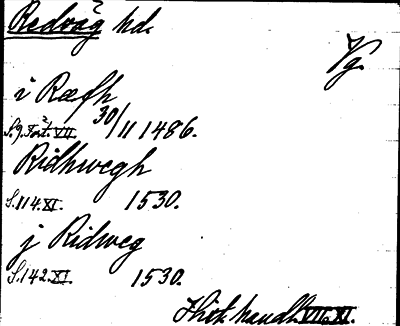 Redväg hd.
Vg.
i Ræfh
S. 9. Fört. VII. 30/11 1486.
Ridhwegh
S. 114. XI. 1530.
j Ridweg
S. 142. XI. 1530.
Hist. handl. VII. XI.